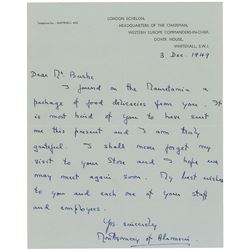 Telephone: WHITEHALL
LONDON ECHELON,
HEADQUARTERS OF THE CHAIRMAN,
WESTERN EUROPE COMMANDERS-IN-CHIEF,
DOVER HOUSE,
WHITEHALL, S.W.1.
3. Dec. 1949
Dear Mr. Burke
I found on the Mauretania a
package of food delicacies from you. It
is most kind of you to have sent
me this present and I am truly
grateful. I shall never forget my
visit to your Store and I hope we
may meet again soon. My best wishes
to you and each one of your staff
and employees.
Yrs. sincerely
Montgomery of Alamein